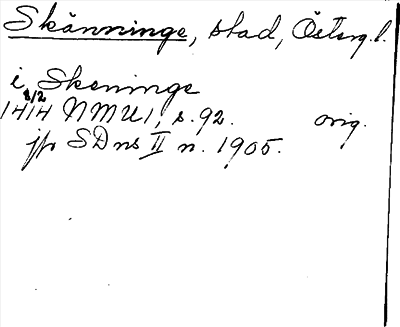 Skänninge, stad, Östrg.l.
i Skeninge
1414 1/2 NMU1, s. 92. orig.
jfr SD ns II n. 1905.